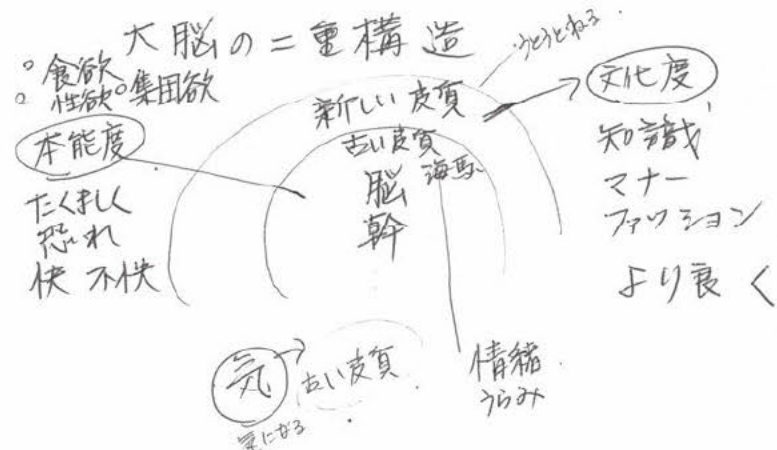 大脳の二重構造
うとうとねる
。食欲
。性欲 。集団欲
本能度
たくましく
恐れ
快 不快
新しい皮質
古い皮質
海馬
脳
幹
文化度
知識
マナー
ファッション
より良く
気
気になる
古い皮質
情緒
うらみ